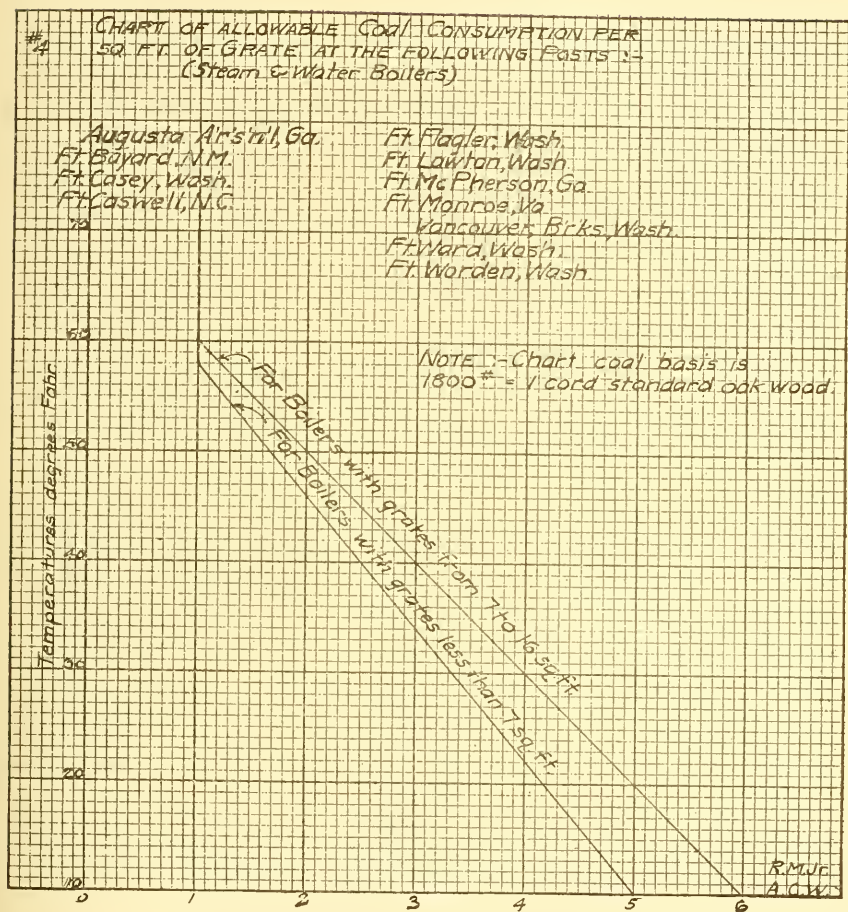 #4
CHART OF ALLOWABLE Coal CONSUMPTION PER
SQ FT. OF GRATE AT THE FOLLOWING POSTS :-
(Steam & Water Boilers)
Augusta A'r's'n'l, Ga.
Ft. Bayard, N.M.
Ft. Casey, Wash.
Ft Caswell, N.C.
Ft. Flagler, Wash.
Ft. Lawton, Wash.
Ft. Mc Pherson, Ga.
Ft. Monroe, Va
Vancouver, B'r'ks, Wash.
Ft. Ward, Wash.
Ft. Worden, Wash.
NOTE :- Chart coal basis is
1800# = 1 cord standard oak wood.
For Boilers with grates from 7 to 16 sq. ft.
For Boilers with grates less than 7 sq. ft.
Temperatures degrees Fahr.
70
60
50
40
30
20
10
0 1 2 3 4 5 6
R.M.Jr.
A.C.W.